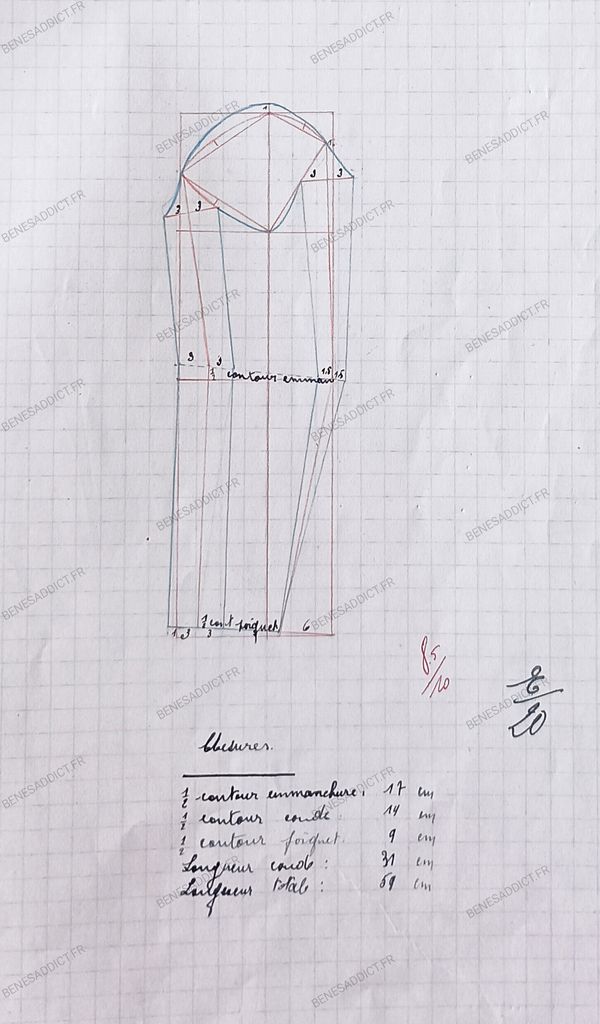 1
1
3 3
3 3
3 3 1.5 1.5
1/2 contour emman
1/2 cont poignet 6
1 3 3
8.5/10
/20
Mesures.
1/2 contour emmanchure : 17 cm
1/2 contour coude : 14 cm
1/2 contour poignet. 9 cm
Longueur coude : 31 cm
Longueur totale : 59 cm
BENESADDICT.FR